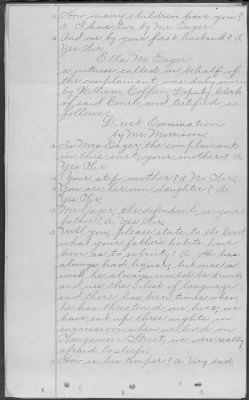 Q How many children have you?
A I have two by Mr. Eager.
Q And one by your first husband? A
Yes Sir.
Ella M. Eager
a witness called on behalf of
the complainant was duly sworn
by William Coffin, Deputy Clerk
of said Court, and testified as
follows.
Direct Examination
by Mr Morrison.
Q Is Mrs. Eager the complainant
in this suit, your mother? A
Yes Sir
Q Your step mother? A No Sir,
Q You are her own daughter? A
Yes Sir,
Q Mr Eager, the defendant, is your
father? A Yes Sir,
Q Will you please state to the Court
what your father's habits have
been as to sobriety? A He has
always had liquor, but once a
week he always would be drunk
and use the vilest of language
and there has been times when
he has threatened our lives, we
have sat up three nights in
succession when we lived on
Sangamon Street, we were really
afraid to sleep.
Q How is his temper? A Very bad,